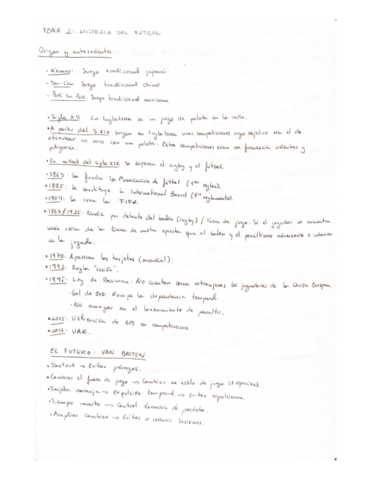 TEMA 1: HISTORIA DEL FÚTBOL
Origen y antecedentes
- Kemari: Juego tradicional japonés.
Juego tradicional chino
- Juego tradicional mexicano.
• Siglo XII En Inglaterra es un juego de pelota en la calle.
• A partir del S.XIX surgen en Inglaterra unas competiciones cuyo objetivo era el de
un arco con una pelota. Estas competiciones eran
peligrosas.
• En mitad del siglo XIX se separan el rugby y el fútbol.
• 1863: Se funda la Asociación de fútbol (1ª reglas).
Se constituye la International Board (1ª reglamento).
• 1904: Se crea la FIFA.
• 1863/1925: Nadie por delante del balón (rugby) / Fuera de juego: Si el jugador se encuentra
más cerca de la línea de meta opuesta que el balón y el penúltimo adversario e interviene
en la jugada.
• 1970: Aparecen las tarjetas (mundial).
Regla "cesión".
• 1995: Ley de Bosman: No cuentan como extranjeros los jugadores de la Unión Europea.
- Gol de Oro: Rompe la dependencia temporal.
- No en el lanzamiento de penaltis.
Utilización de GPS en competiciones.
VAR.
EL FUTURO: VAN BASTEN
• Shootout → Evitar prórrogas.
• Cambiar el fuera de juego → Cambiar un estilo de juego
• Tarjeta naranja → Expulsión temporal → Evitar expulsiones.
• Tiempo → Control duración de partido.
• Ampliar cambios → Evitar o reducir lesiones.